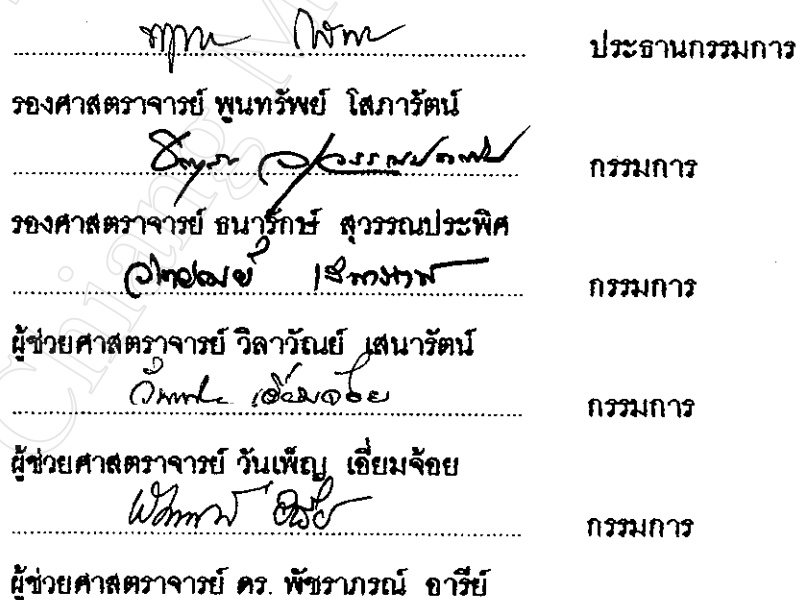 ประธานกรรมการ
รองศาสตราจารย์ พูนทรัพย์ โสภารัตน์
กรรมการ
รองศาสตราจารย์ ธนารักษ์ สุวรรณประพิศ
กรรมการ
ผู้ช่วยศาสตราจารย์ วิลาวัณย์ เสนารัตน์
กรรมการ
ผู้ช่วยศาสตราจารย์ วันเพ็ญ เอี่ยมจ้อย
กรรมการ
ผู้ช่วยศาสตราจารย์ ดร. พัชราภรณ์ อารีย์
Chiang M